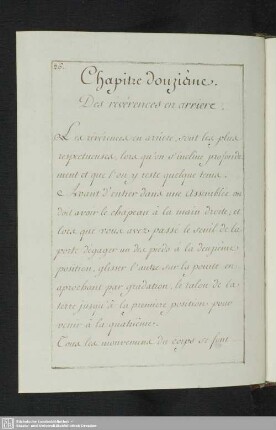 26.
Chapitre douzième.
Des révérences en arriere.
Les révérences en arriere, sont les plus
respectueuses, lors qu'on s'incline profondé
ment et que l'on y reste quelque tems.
Avant d'entrer dans une assemblée on
doit avoir le chapeau à la main droite, et
lors que vous avez passé le seuil de la
porte dégager un des pieds à la deuxième
position, glisser l'autre sur la pointe en
approchant par gradation, le talon de la
terre jusqu'à la premiere position, pour
venir à la quatrième.
Tous les mouvemens du corps se font